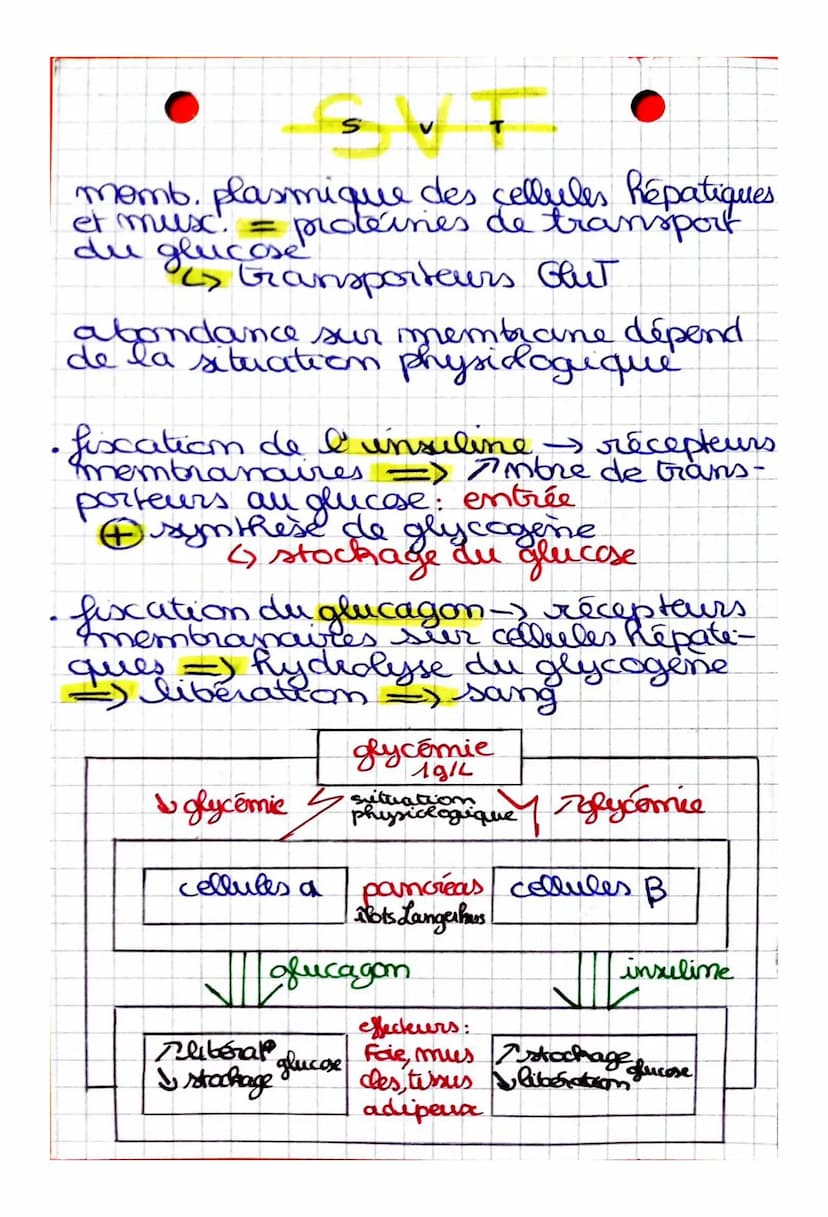 SVT
S V T
memb. plasmique des cellules hépatiques
et musc. = protéines de transport
du glucose
↳ transporteurs GluT
abondance sur membrane dépend
de la situation physiologique
. fixation de l'insuline → récepteurs
membranaires ⇒ ↗ nbre de trans-
porteurs au glucose: entrée
⊕ synthèse de glycogène
↳ stockage du glucose
. fixation du glucagon → récepteurs
membranaires sur cellules hépati-
ques ⇒ hydrolyse du glycogène
⇒ libération ⇒ sang
glycémie
1g/L
↘ glycémie situation ↗ glycémie
physiologique
cellules α pancréas cellules β
îlots Langerhans
glucagon insuline
effecteurs:
↗ libérat° glucose Foie, mus ↗ stockage glucose
↘ stockage cles, tissus ↘ libération
adipeux